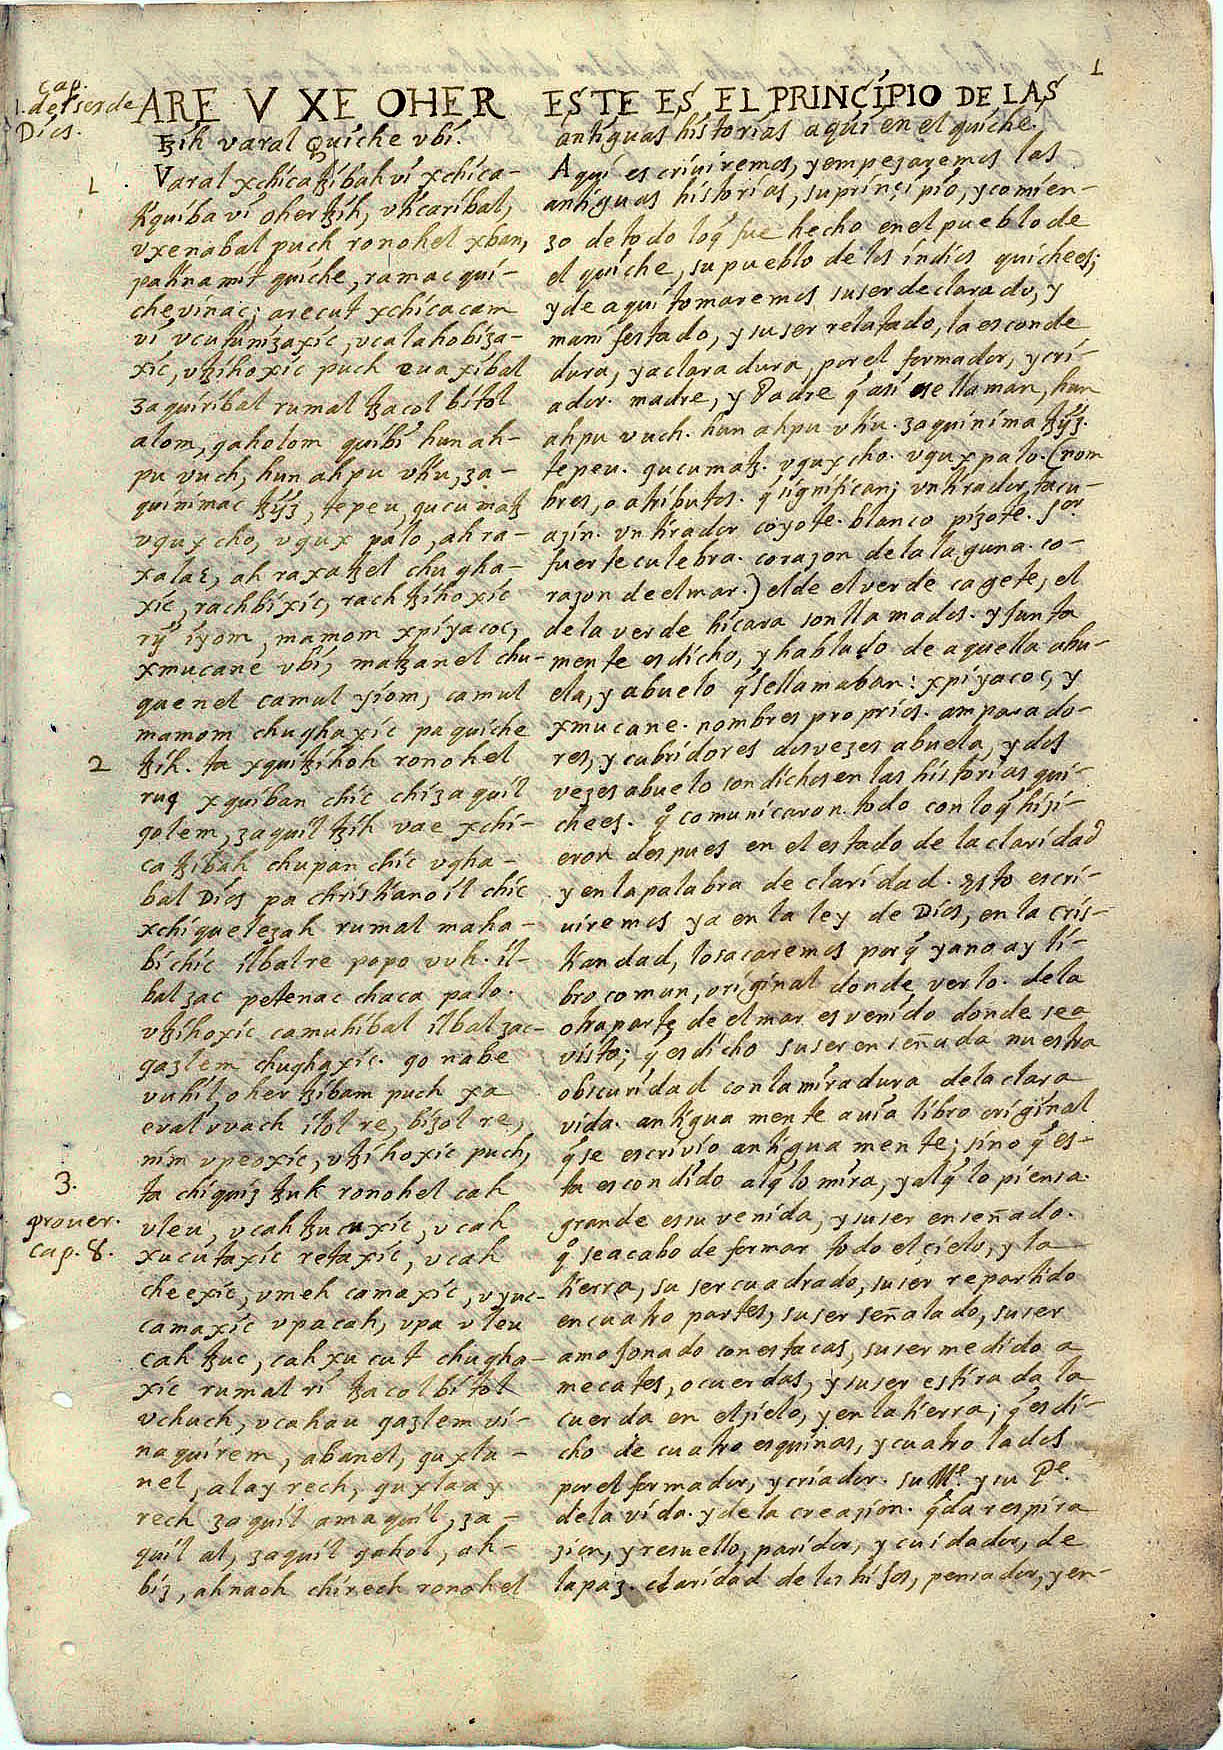 1
cap.
1. del ser de
Dios.
ARE V XE OHER
tzih varal Quiche vbi.
1.
Varal xchicatzibah vi xchica-
tiquiba vi oher tzih, vticaribal,
vxenabal puch ronohel xban,
pa tinamit quiche, ramac qui-
che vinac; arecut xchicacam
vi vcutunizaxic, vcalahobiza-
xic, vtzihoxic puch euaxibal
zaquiribal rumal tzacol bitol
alom, qaholom quibi hun ah-
pu vuch, hun ahpu vtiu, za-
quinimac tzyz, tepeu, qucumatz
vqux cho, vqux palo, ah ra-
xa laε, ah raxa tzel chugha-
xic, rachbixic, rach tzihoxic
rij iyom, mamom xpiyacoc,
xmucane vbi, matzanel chu-
quenel camul yiom, camul
mamom chughaxic pa quiche
2
tzih. ta xquitzihoh ronohel
ruq xquiban chic chi zaquil
qolem, zaquil tzih vae xchi-
ca tzibah chupan chic vgha-
bal Dios pa christianoil chic
xchiquelezah rumal maha-
bi chic ilbal re popo vuh. il-
bal zac petenac chaca palo.
vtzihoxic camuhibal ilbal zac-
qazlem chughaxic. qo nabe
vuhil, oher tzibam puch xa
eval vvach ilol re, bizol re,
nim vpeoxic, vtzihoxic puch,
3.
ta chiquiz tzuk ronohel cah
prouer.
cap. 8.
vleu, vcah tzucuxic, vcah
xucutaxic retaxic, vcah
cheexic, vmeh camaxic, vyuc-
camaxic vpa cah, vpa vleu
cah tzuc, cah xucut chugha-
xic rumal ri tzacol bitol
vchuch, vcahau qazlem vi-
naquirem, abanel, quxla-
nel, alay rech, quxlaay
rech zaquil amaquil, za-
quil al, zaquil qahol, ah-
biz, ahnaoh chirech ronohel
ESTE ES EL PRINCIPIO DE LAS
antiguas historias aqui en el quiche.
Aqui escriuiremos, y empezaremos las
antiguas historias, su prinçipio, y comien-
zo de todo loq̃ fue hecho en el pueblo de
el quiche, su pueblo de los indios quichees;
y de aqui tomaremos su ser declarado, y
manifestado, y su ser relatado, la esconde
dura, y aclaradura, por el formador, y cri-
ador. madre, y Padre q̃ asi se llaman, hun
ahpu vuch. hun ahpu vtiu. zaquinima tzyz.
tepeu. qucumatz. vqux cho. vqux palo. (nom
bres, o atributos. q̃ significan; vn tirador, tacu-
azin. vn tirador coyote. blanco pizote. sor
fuerte culebra. corazon de la laguna. co-
razon de el mar.) el de el verde cagete, el
de la verde hicara son llamados. y junta
mente es dicho, y hablado de aquella abu-
ela, y abuelo q̃ se llamaban: xpiyacoc, y
xmucane. nombres proprios. amparado-
res, y cubridores dos vezes abuela, y dos
vezes abuelo son dichos en las historias qui-
chees. q̃ comunicaron todo con loq̃ hizi-
eron despues en el estado de la claridad
y en la palabra de claridad. Esto escri-
uiremos ya en la ley de Dios, en la cris-
tiandad, lo sacaremos porq̃ ya no ay li-
bro comun, original donde verlo. de la
otra parte de el mar es venido donde sea
visto; q̃ es dicho su ser enseñada nuestra
obscuridad con la miradura de la clara
vida. antigua mente auia libro original
q̃ se escrivio antigua mente; sino q̃ es-
ta escondido alq̃ lo mira, y alq̃ lo piensa.
grande es su venida, y su ser enseñado.
q̃ se acabo de formar todo el çielo, y la
tierra, su ser cuadrado, su ser repartido
en cuatro partes, su ser señalado, su ser
amojonado con estacas, su ser medido a
mecates, o cuerdas, y su ser estirada la
cuerda en el zielo, y en la tierra; q̃ es di-
cho de cuatro esquinas, y cuatro lados
por el formador, y criador. su Mᵉ y su Pᵉ.
de la vida. y de la creazion. q̃ da respira
zion, y resuello, paridor, y cuidador, de
la paz. claridad de los hijos, pensador, y en-